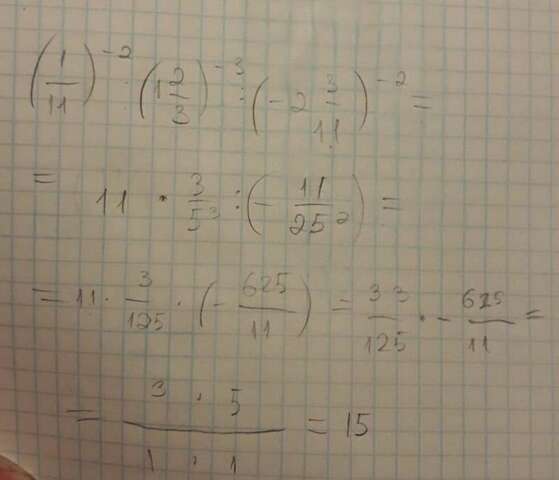 (1/11)^-2 · (1 2/3)^-3 : (-2 3/11)^-2 =
= 11 · 3/5^3 : (- 11/25^2) =
= 11 · 3/125 · (- 625/11) = 33/125 · - 625/11 =
= 3 · 5 / 1 · 1 = 15